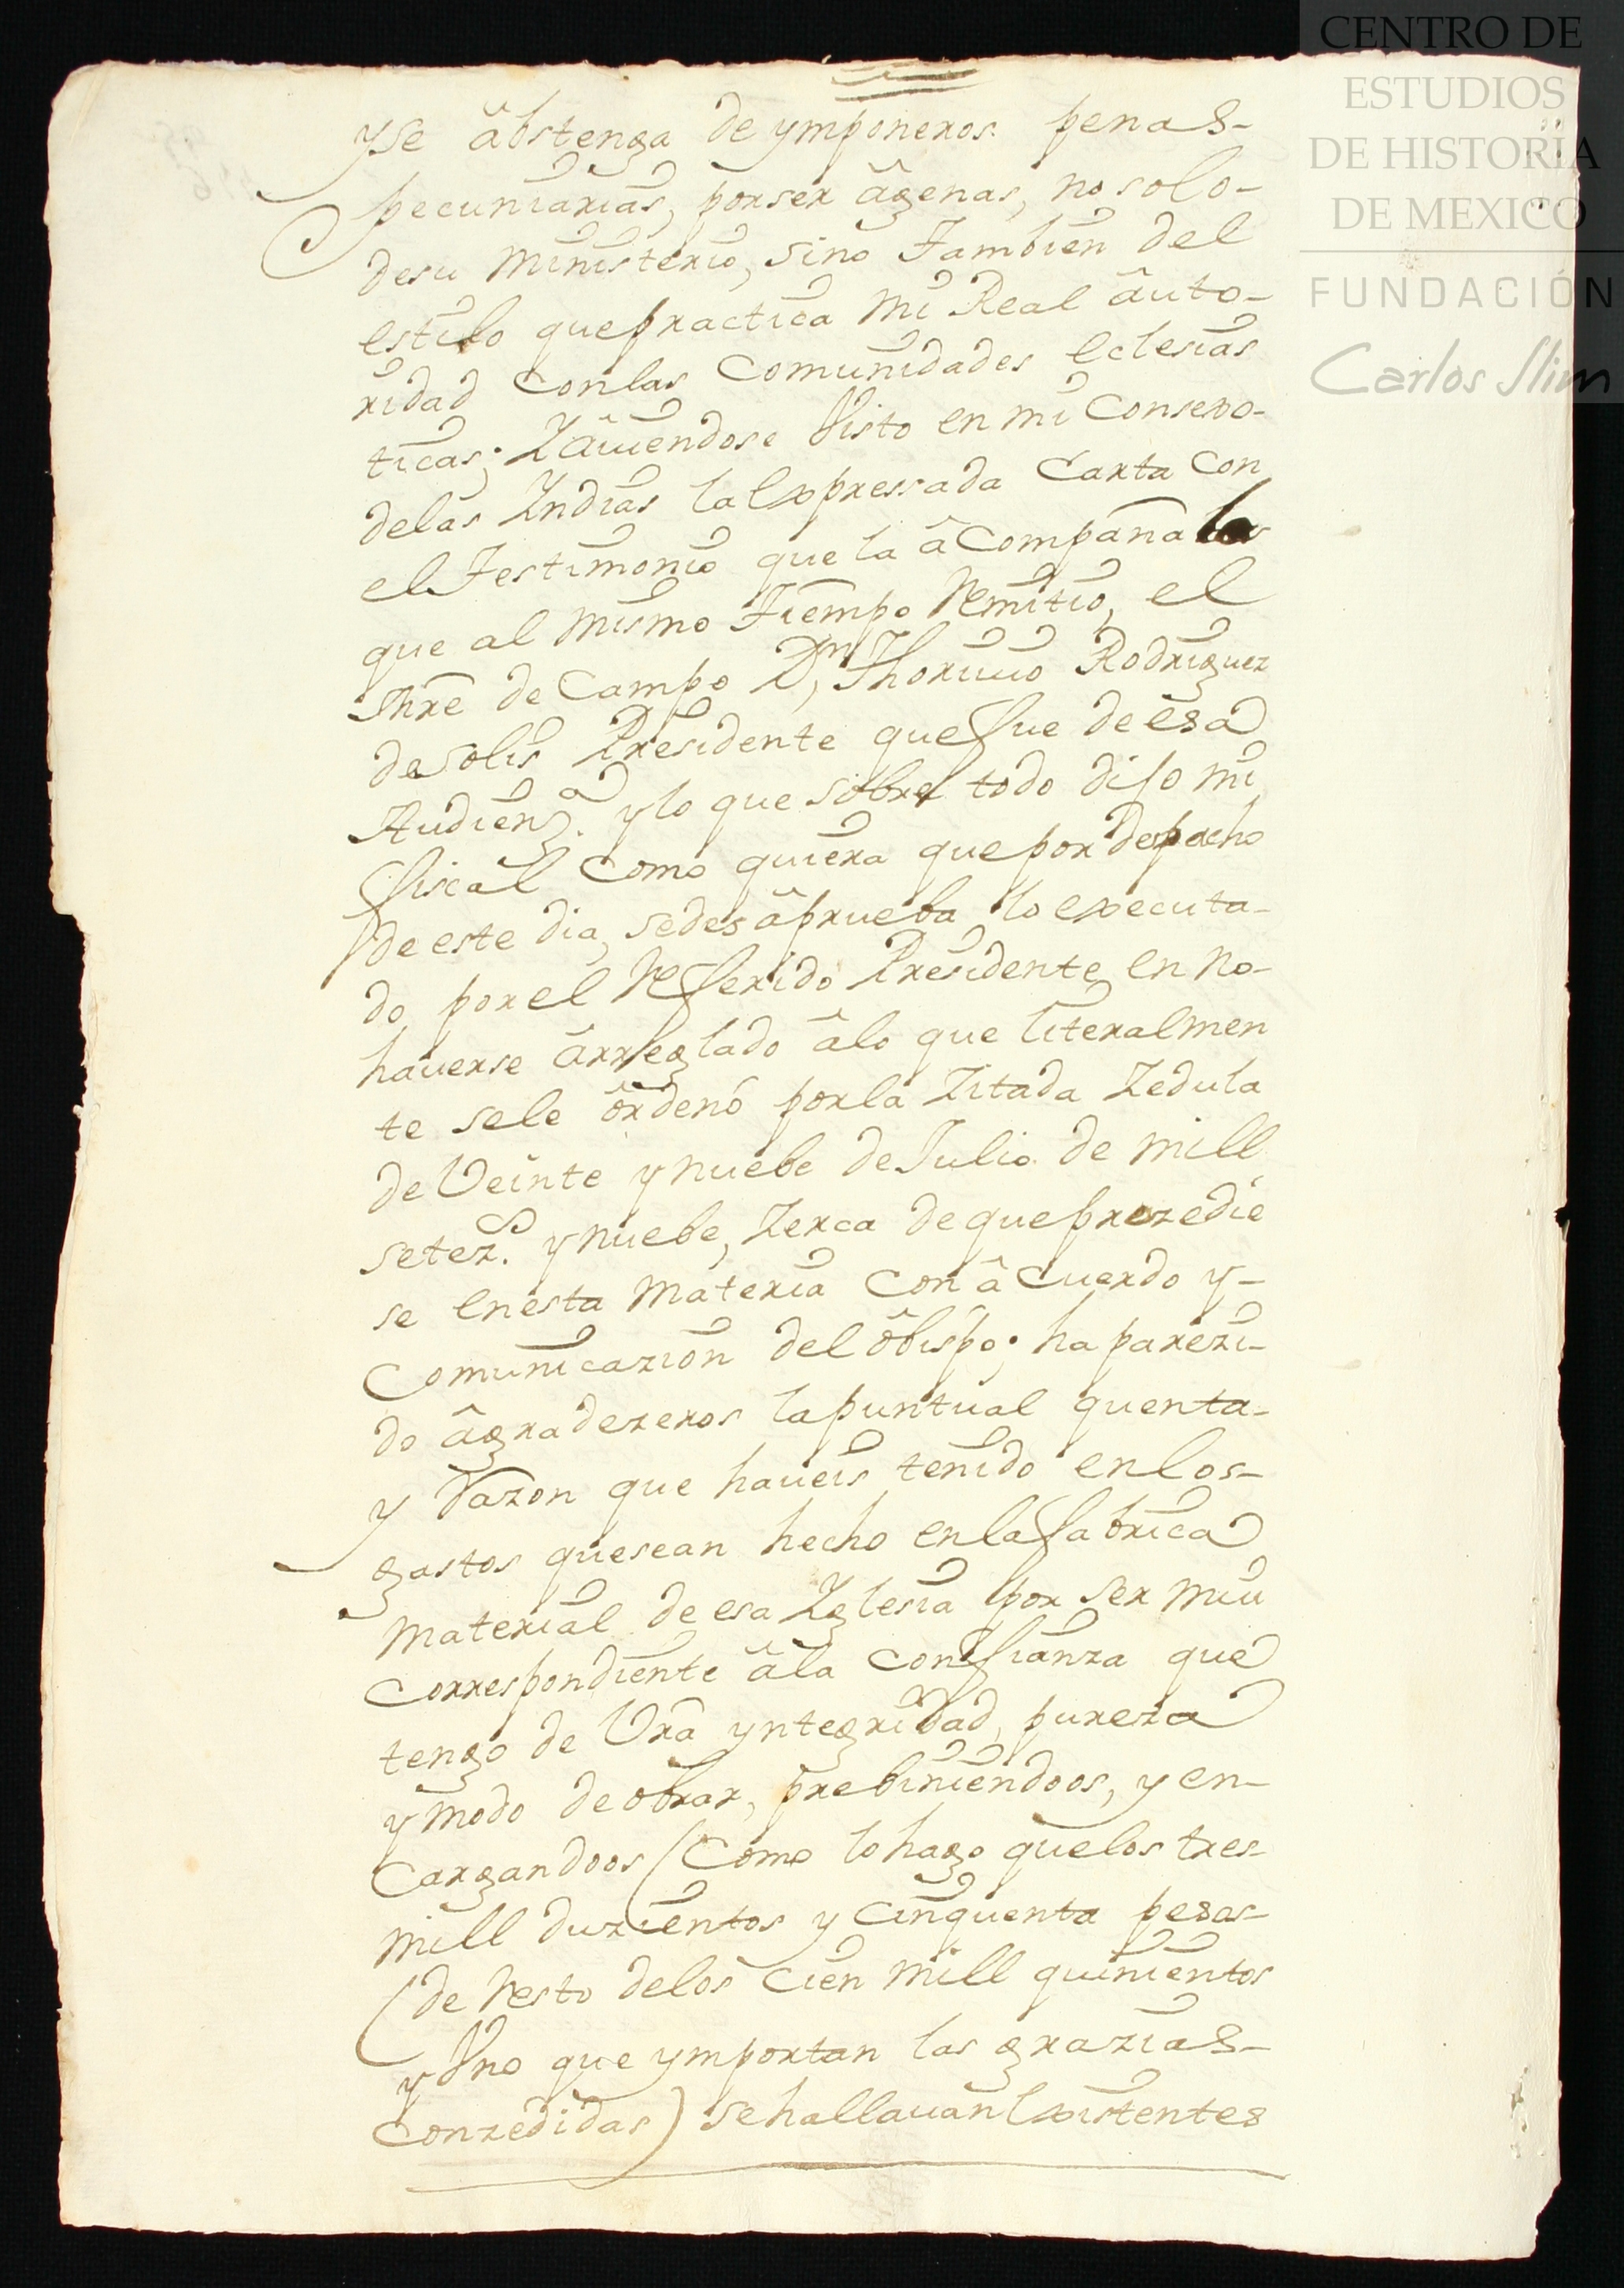 CENTRO DE
ESTUDIOS
DE HISTORIA
DE MEXICO
FUNDACIÓN
Carlos Slim
y se âbstenga de ymponeros penas-
pecuniarias, por ser âgenas, no solo-
de su Ministerio, sino Tambien del
estilo que practica Mi Real âuto-
ridad con las Comunidades eclesias
ticas; Zauiendose Visto en mi Consexo-
delas Indias la expressada Carta con
el Testimonio que la âcompaña los
que al Mismo Tiempo Remitio, el
Mre de Campo Dn, Thoriuio Rodriguez
de solis Presidente que fue de esa
Audienza. y lo que sobre todo dijo mi
fiscal Como quiera que por despacho
de este dia, se des âprueba lo executa-
do por el Referido Presidente en no-
hauerse ârreglado âlo que literalmen
te sele ôrdenó por la Zitada Zedula
de Veinte y nuebe de Julio de mill
setezos. y nuebe, Zerca de que prozedie
se en esta Materia Con âcuerdo y-
Comunicazion del ôbispo; ha parezi-
do âgradezeros la puntual quenta-
y Razon que haueis tenido en los-
gastos que sean hecho en la fabrica
Material de esa Iglesia por ser mui
correspondiente âla confianza que
tengo de Vra yntegridad, pureza
y modo de obrar, prebiniendoos, y en-
cargandoos (Como lo hago que los tres-
mill duzientos y cinquenta pesos-
(de Resto delos cien mill quinientos
y Vno que ymportan las grazias-
Conzedidas) se hallauan existentes